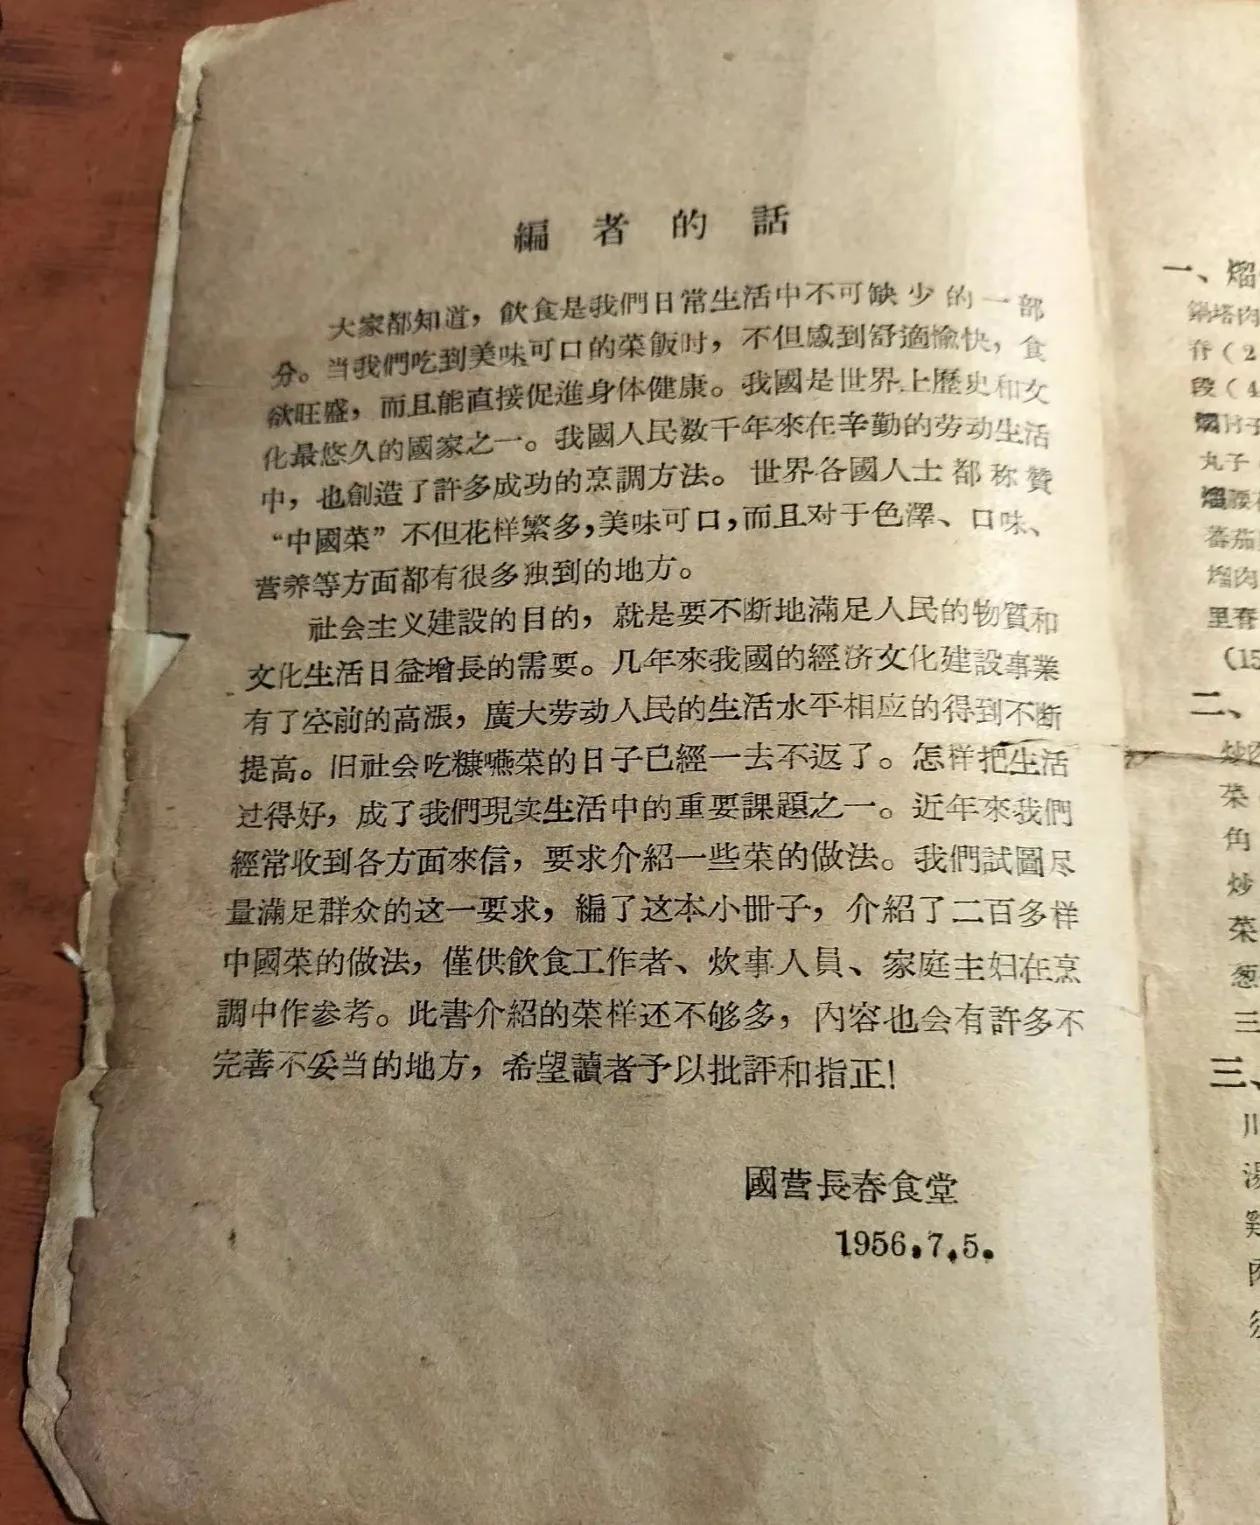 編者的話
大家都知道，飲食是我們日常生活中不可缺少的一部
分。当我們吃到美味可口的菜飯时，不但感到舒適愉快，食
欲旺盛，而且能直接促進身体健康。我國是世界上歷史和文
化最悠久的國家之一。我國人民数千年來在辛勤的劳动生活
中，也創造了許多成功的烹調方法。世界各國人士都称贊
“中國菜”不但花样繁多，美味可口，而且对于色澤、口味、
营养等方面都有很多独到的地方。
社会主义建設的目的，就是要不断地滿足人民的物質和
文化生活日益增長的需要。几年來我國的經济文化建設事業
有了空前的高漲，廣大劳动人民的生活水平相应的得到不断
提高。旧社会吃糠嚥菜的日子已經一去不返了。怎样把生活
过得好，成了我們現实生活中的重要課題之一。近年來我們
經常收到各方面來信，要求介紹一些菜的做法。我們試圖尽
量滿足群众的这一要求，編了这本小冊子，介紹了二百多样
中國菜的做法，僅供飲食工作者、炊事人員、家庭主妇在烹
調中作参考。此書介紹的菜样还不够多，內容也会有許多不
完善不妥当的地方，希望讀者予以批評和指正！
國营長春食堂
1956.7.5.
一、熘
鍋塔肉
脊（2
段（4
丸子
腰
蕃茄
熘肉
里脊
（15
二、
炒肉
菜
角
炒
菜
葱
三
三、
川
湯
肉